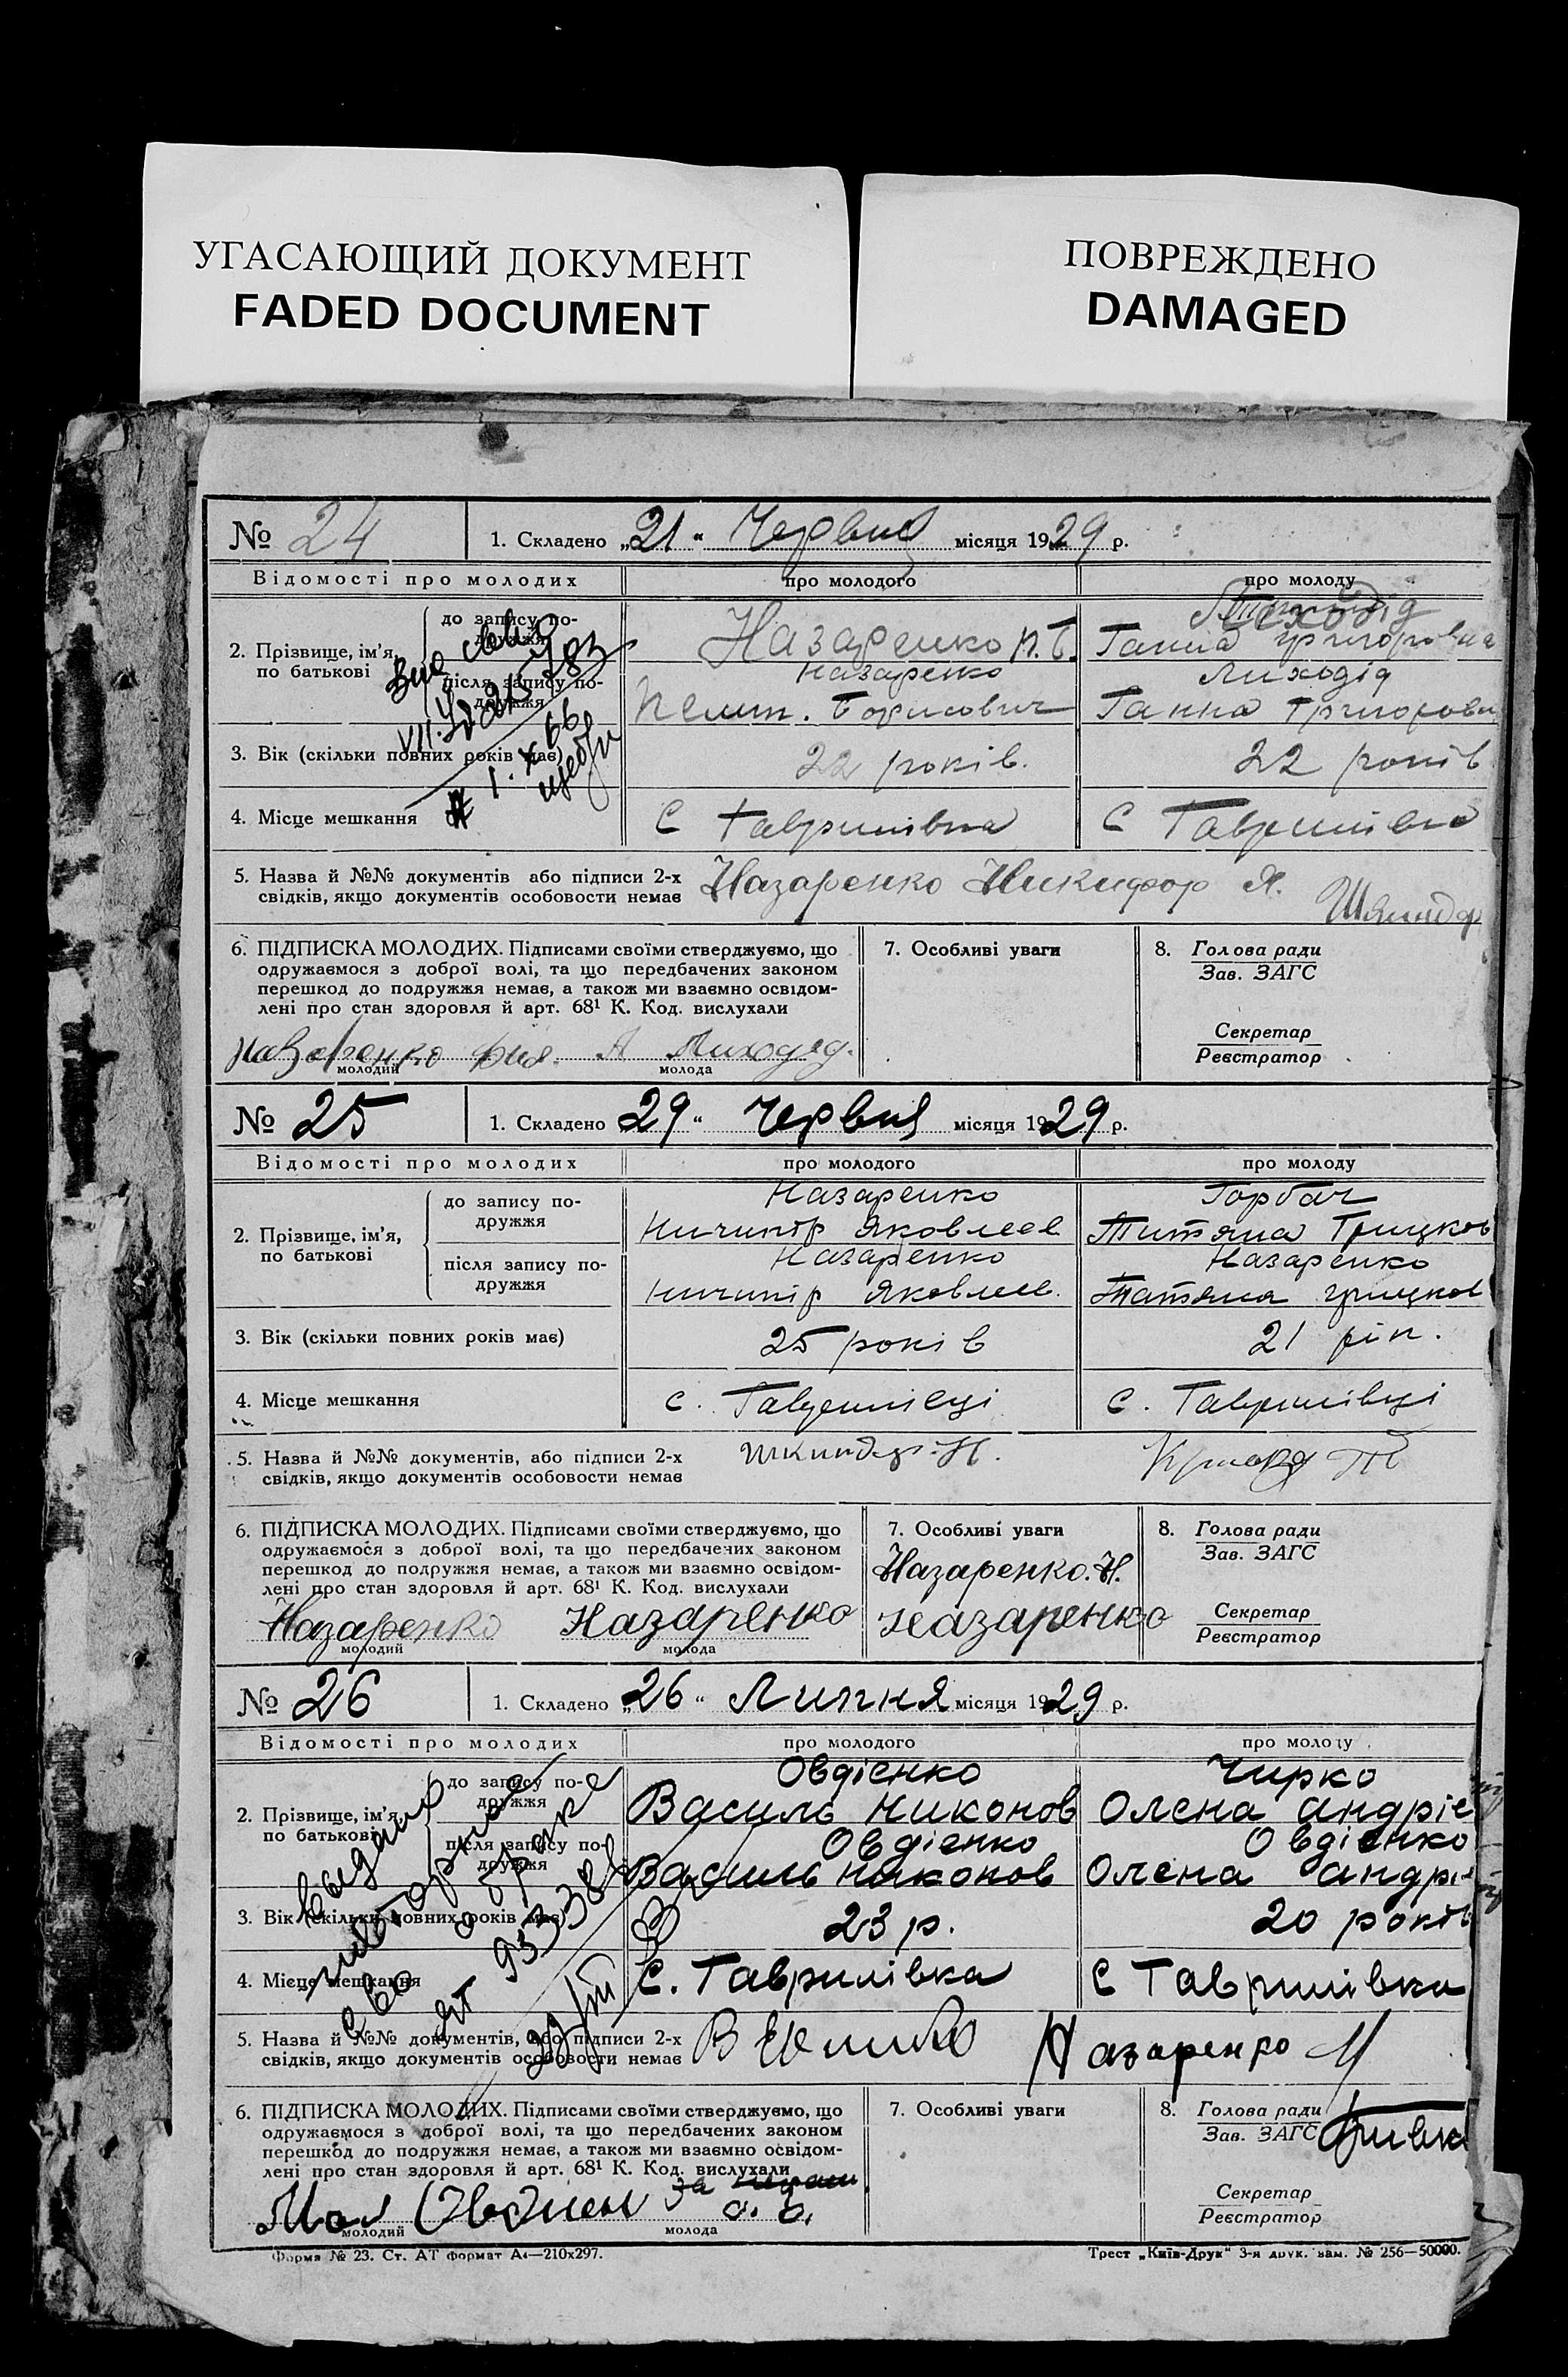 УГАСАЮЩИЙ ДОКУМЕНТ
FADED DOCUMENT
ПОВРЕЖДЕНО
DAMAGED
№ 24
1. Складено „21“ Червня місяця 1929 р.
Відомості про молодих
про молодого
про молоду
2. Прізвище, ім'я, по батькові
до запису подружжя
Назаренко П. Б.
Лиходід
Ганна Григоровна
після запису подружжя
Назаренко
Борисович
Лиходід
Ганна Григоровн
3. Вік (скільки повних років має)
22 років.
22 років
4. Місце мешкання
С Гаврилівка
С Гаврилівка
5. Назва й №№ документів або підписи 2-х
свідків, якщо документів особовости немає
Назаренко Никифор Я.
6. ПІДПИСКА МОЛОДИХ. Підписами своїми стверджуємо, що
одружаємося з доброї волі, та що передбачених законом
перешкод до подружжя немає, а також ми взаємно освідом-
лені про стан здоровля й арт. 68¹ К. Код. вислухали
Назаренко
Лиходід.
молодий
молода
7. Особливі уваги
8. Голова ради
Зав. ЗАГС
Секретар
Реєстратор
№ 25
1. Складено „29“ Червня місяця 1929 р.
Відомості про молодих
про молодого
про молоду
2. Прізвище, ім'я,
по батькові
до запису по-
дружжя
Назаренко
Ничипір Яковлев
Горбач
Титяна Грицков
після запису по-
дружжя
Назаренко
Ничипір Яковлев.
Назаренко
Татяна Грицков
3. Вік (скільки повних років має)
25 років
21 рік.
4. Місце мешкання
с. Гаврилівці
с. Гаврилівці
5. Назва й №№ документів, або підписи 2-х
свідків, якщо документів особовости немає
6. ПІДПИСКА МОЛОДИХ. Підписами своїми стверджуємо, що
одружаємося з доброї волі, та що передбачених законом
перешкод до подружжя немає, а також ми взаємно освідом-
лені про стан здоровля й арт. 68¹ К. Код. вислухали
Назаренко
Назаренко
молодий
молода
7. Особливі уваги
Назаренко. Н.
Назаренко
8. Голова ради
Зав. ЗАГС
Секретар
Реєстратор
№ 26
1. Складено „26“ Липня місяця 1929 р.
Відомості про молодих
про молодого
про молоду
2. Прізвище, ім'я,
по батькові
до запису по-
дружжя
Овдієнко
Василь Никонов
Чирко
Олена Андріє
після запису по-
дружжя
Овдієнко
Василь Никонов
Овдієнко
Олена Андрі
Выдано
повторное
с во о браке
3. Вік (скільки повних років має)
23 р.
20 років
4. Місце мешкання
С. Гаврилівка
С Гаврилівка
5. Назва й №№ документів, або підписи 2-х
свідків, якщо документів особовости немає
Назаренко
6. ПІДПИСКА МОЛОДИХ. Підписами своїми стверджуємо, що
одружаємося з доброї волі, та що передбачених законом
перешкод до подружжя немає, а також ми взаємно освідом-
лені про стан здоровля й арт. 68¹ К. Код. вислухали
молодий
молода
7. Особливі уваги
8. Голова ради
Зав. ЗАГС
Секретар
Реєстратор
Форма № 23. Ст. АТ формат А4—210х297.
Трест „Київ-Друк“ 3-я друк. зам. № 256—50000.